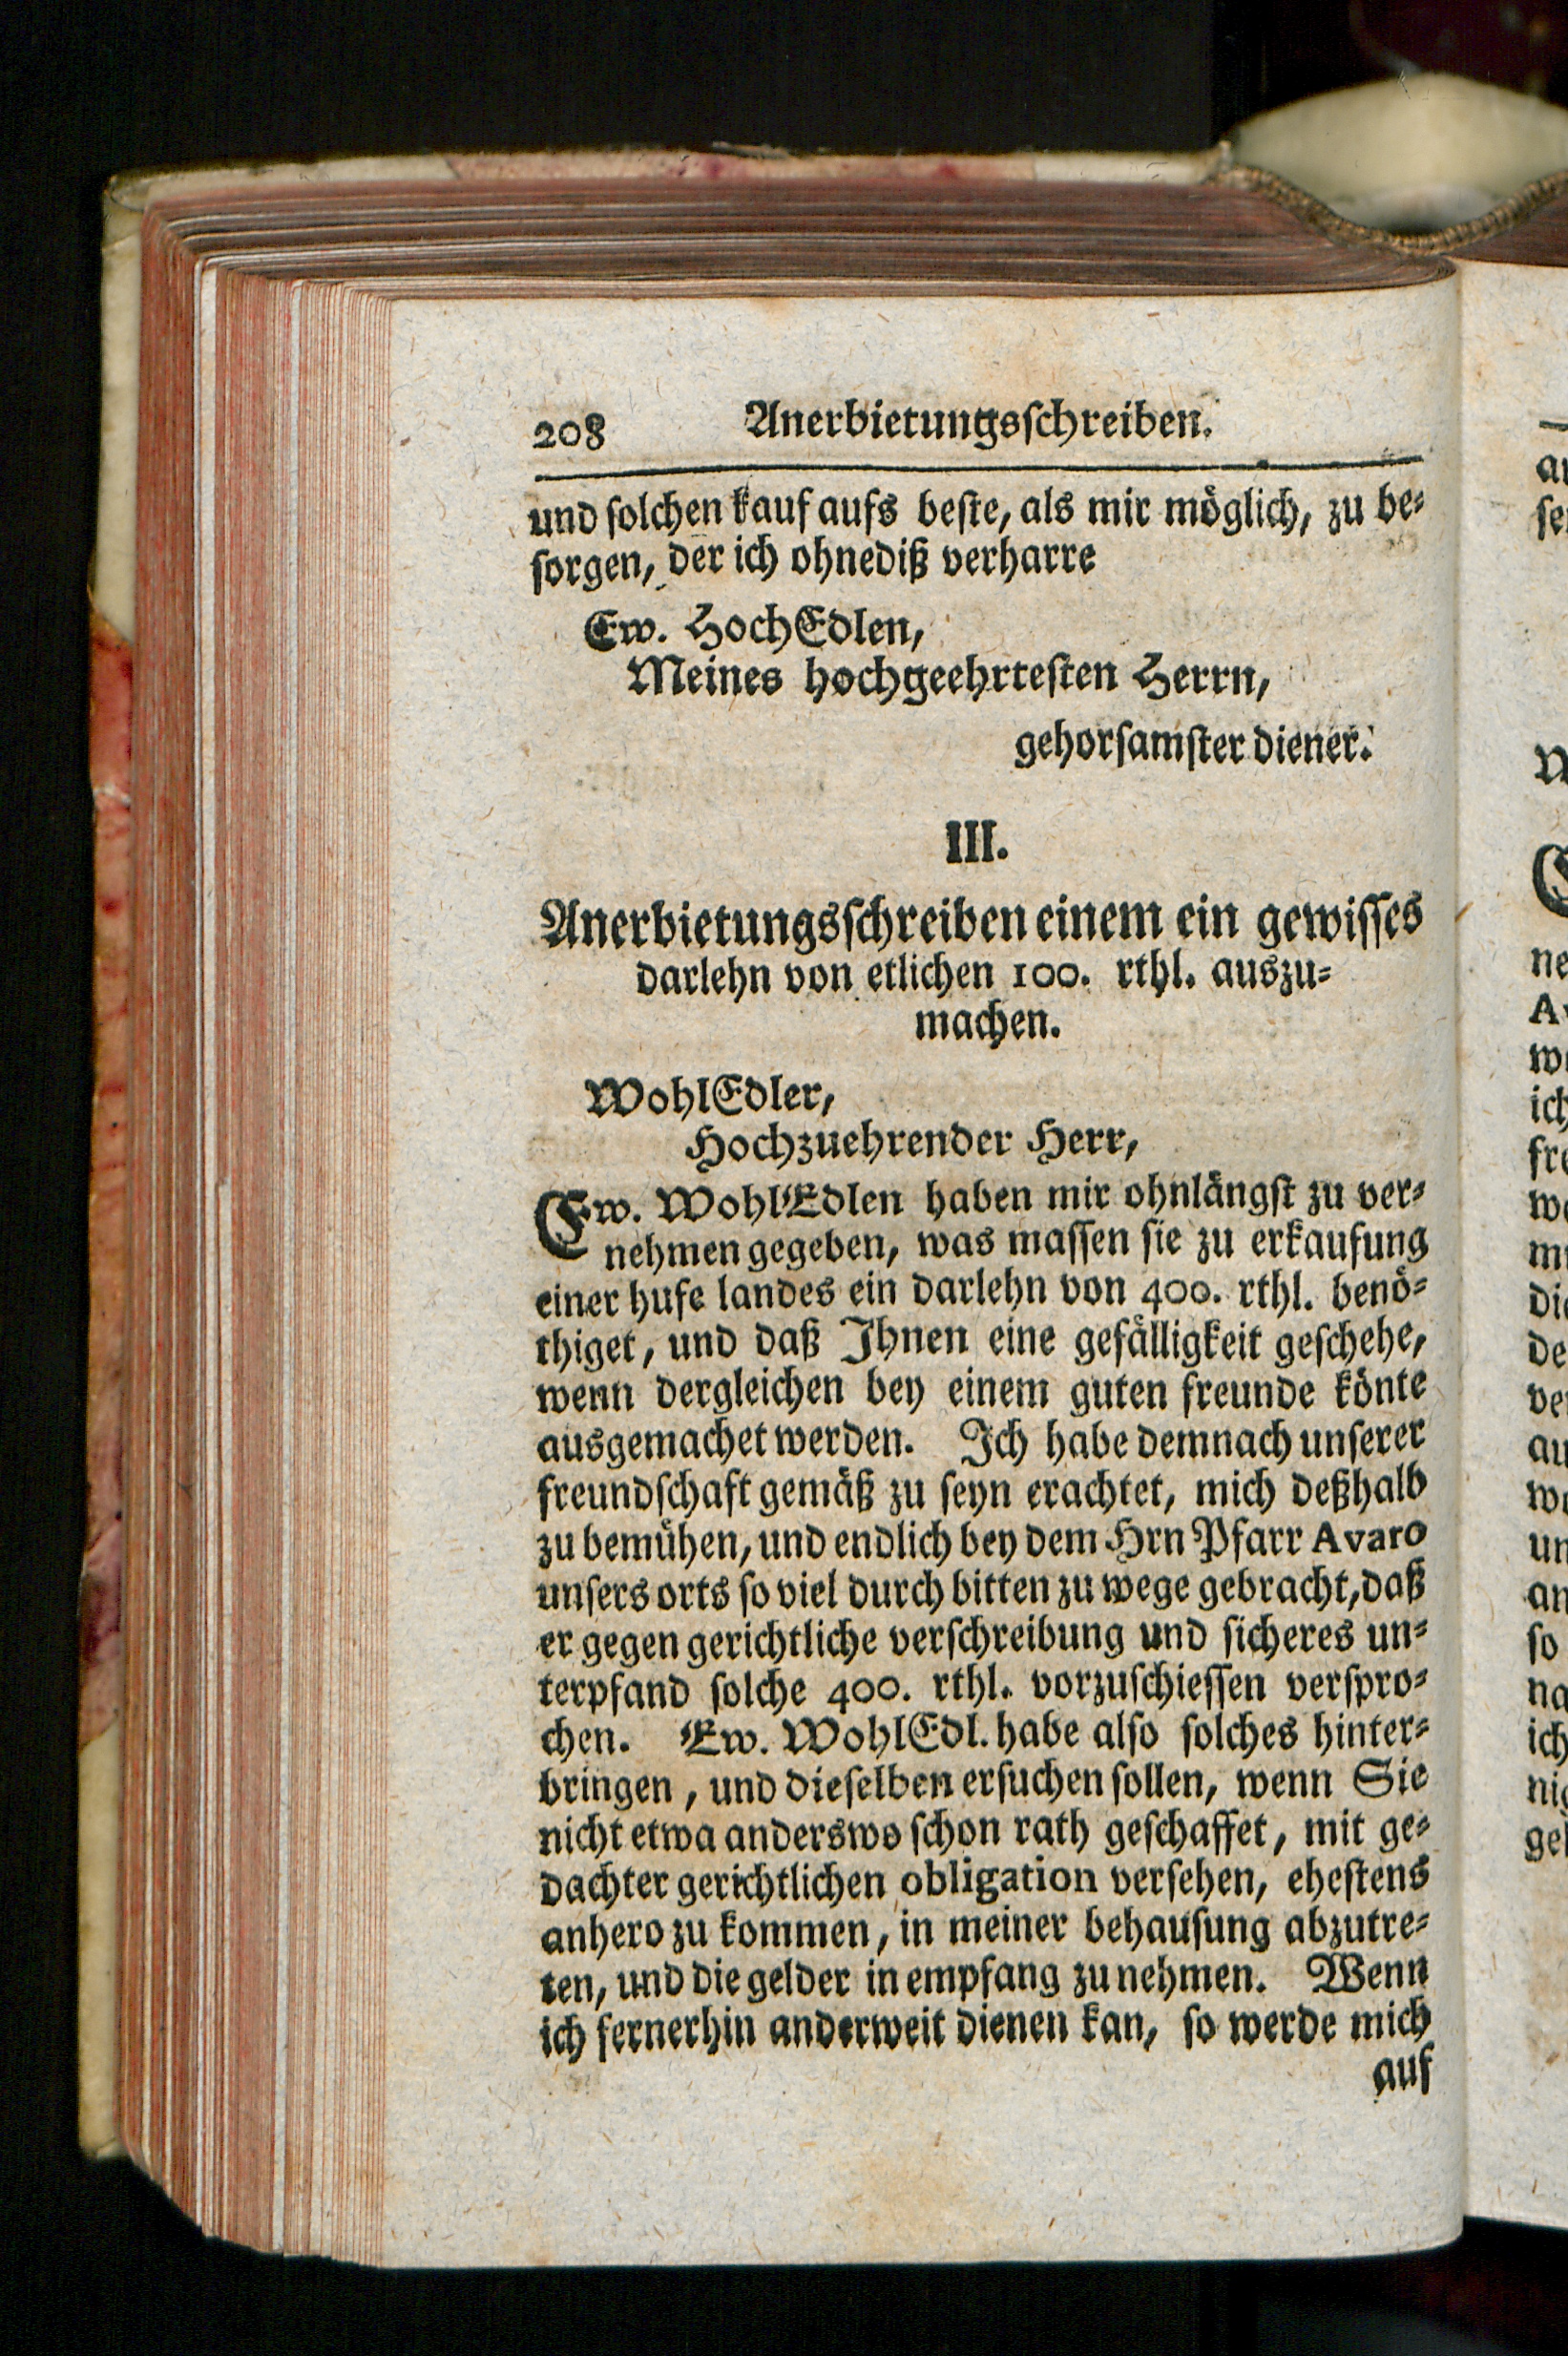 208 Anerbietungsſchreiben.
und ſolchen kauf aufs beſte, als mir möglich, zu be⸗
ſorgen, der ich ohnediß verharre
Ew. HochEdlen,
Meines hochgeehrteſten Herrn,
gehorſamſter diener.
III.
Anerbietungsſchreiben einem ein gewiſſes
darlehn von etlichen 100. rthl. auszu⸗
machen.
WohlEdler,
Hochzuehrender Herr,
Ew. WohlEdlen haben mir ohnlängſt zu ver⸗
nehmen gegeben, was maſſen ſie zu erkaufung
einer hufe landes ein darlehn von 400. rthl. benö⸗
thiget, und daß Ihnen eine gefälligkeit geſchehe,
wenn dergleichen bey einem guten freunde könte
ausgemachet werden. Ich habe demnach unſerer
freundſchaft gemäß zu ſeyn erachtet, mich deßhalb
zu bemühen, und endlich bey dem Hrn Pfarr Avaro
unſers orts ſo viel durch bitten zu wege gebracht, daß
er gegen gerichtliche verſchreibung und ſicheres un⸗
terpfand ſolche 400. rthl. vorzuſchieſſen verſpro⸗
chen. Ew. WohlEdl. habe alſo ſolches hinter⸗
bringen, und dieſelben erſuchen ſollen, wenn Sie
nicht etwa anderswo ſchon rath geſchaffet, mit ge⸗
dachter gerichtlichen obligation verſehen, eheſtens
anhero zu kommen, in meiner behauſung abzutre⸗
ten, und die gelder in empfang zu nehmen. Wenn
ich fernerhin anderweit dienen kan, ſo werde mich
auf